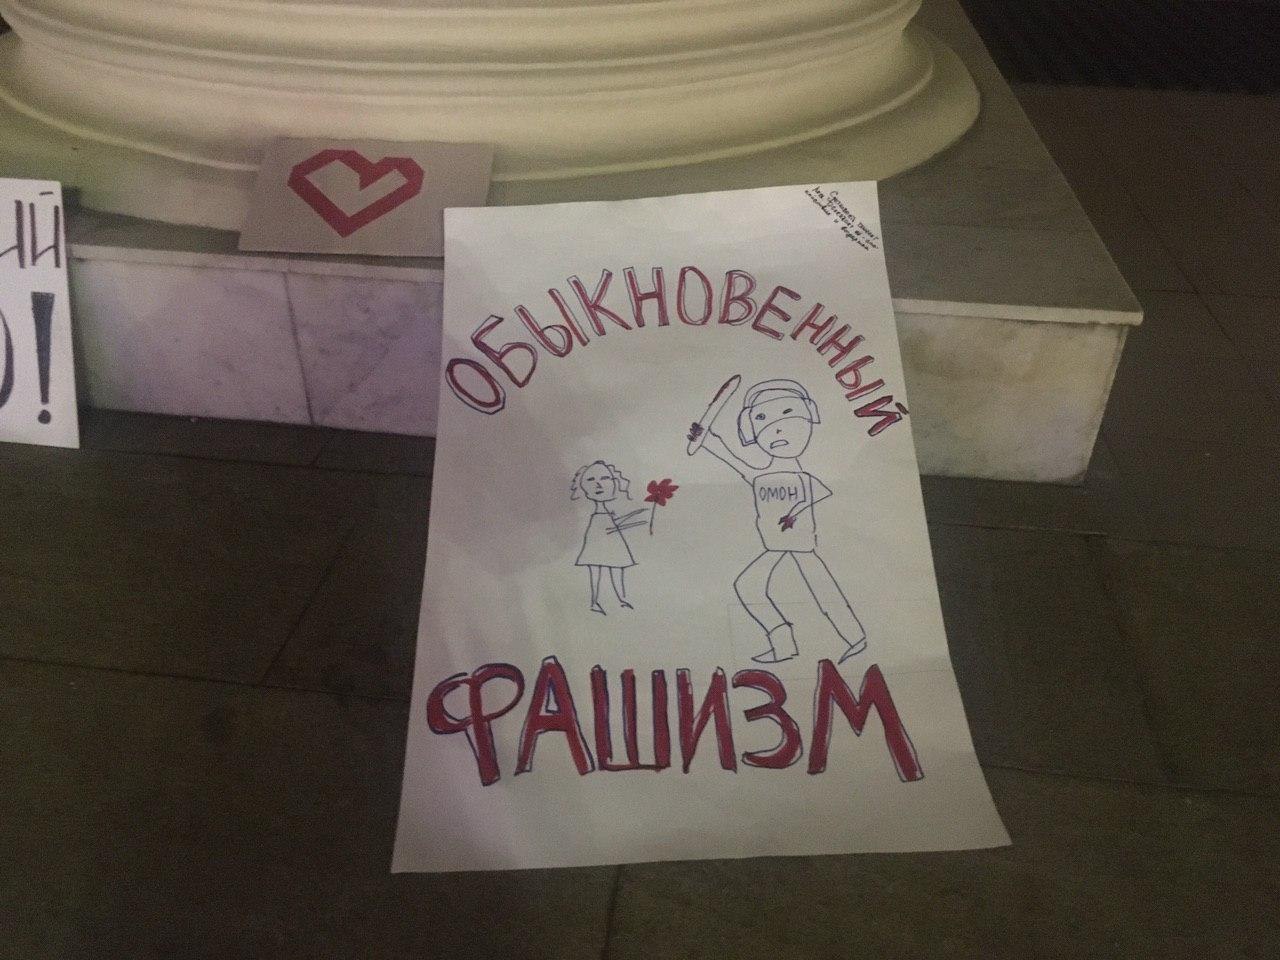 ИЙ
О!
ОБЫКНОВЕННЫЙ
ОМОН
ФАШИЗМ